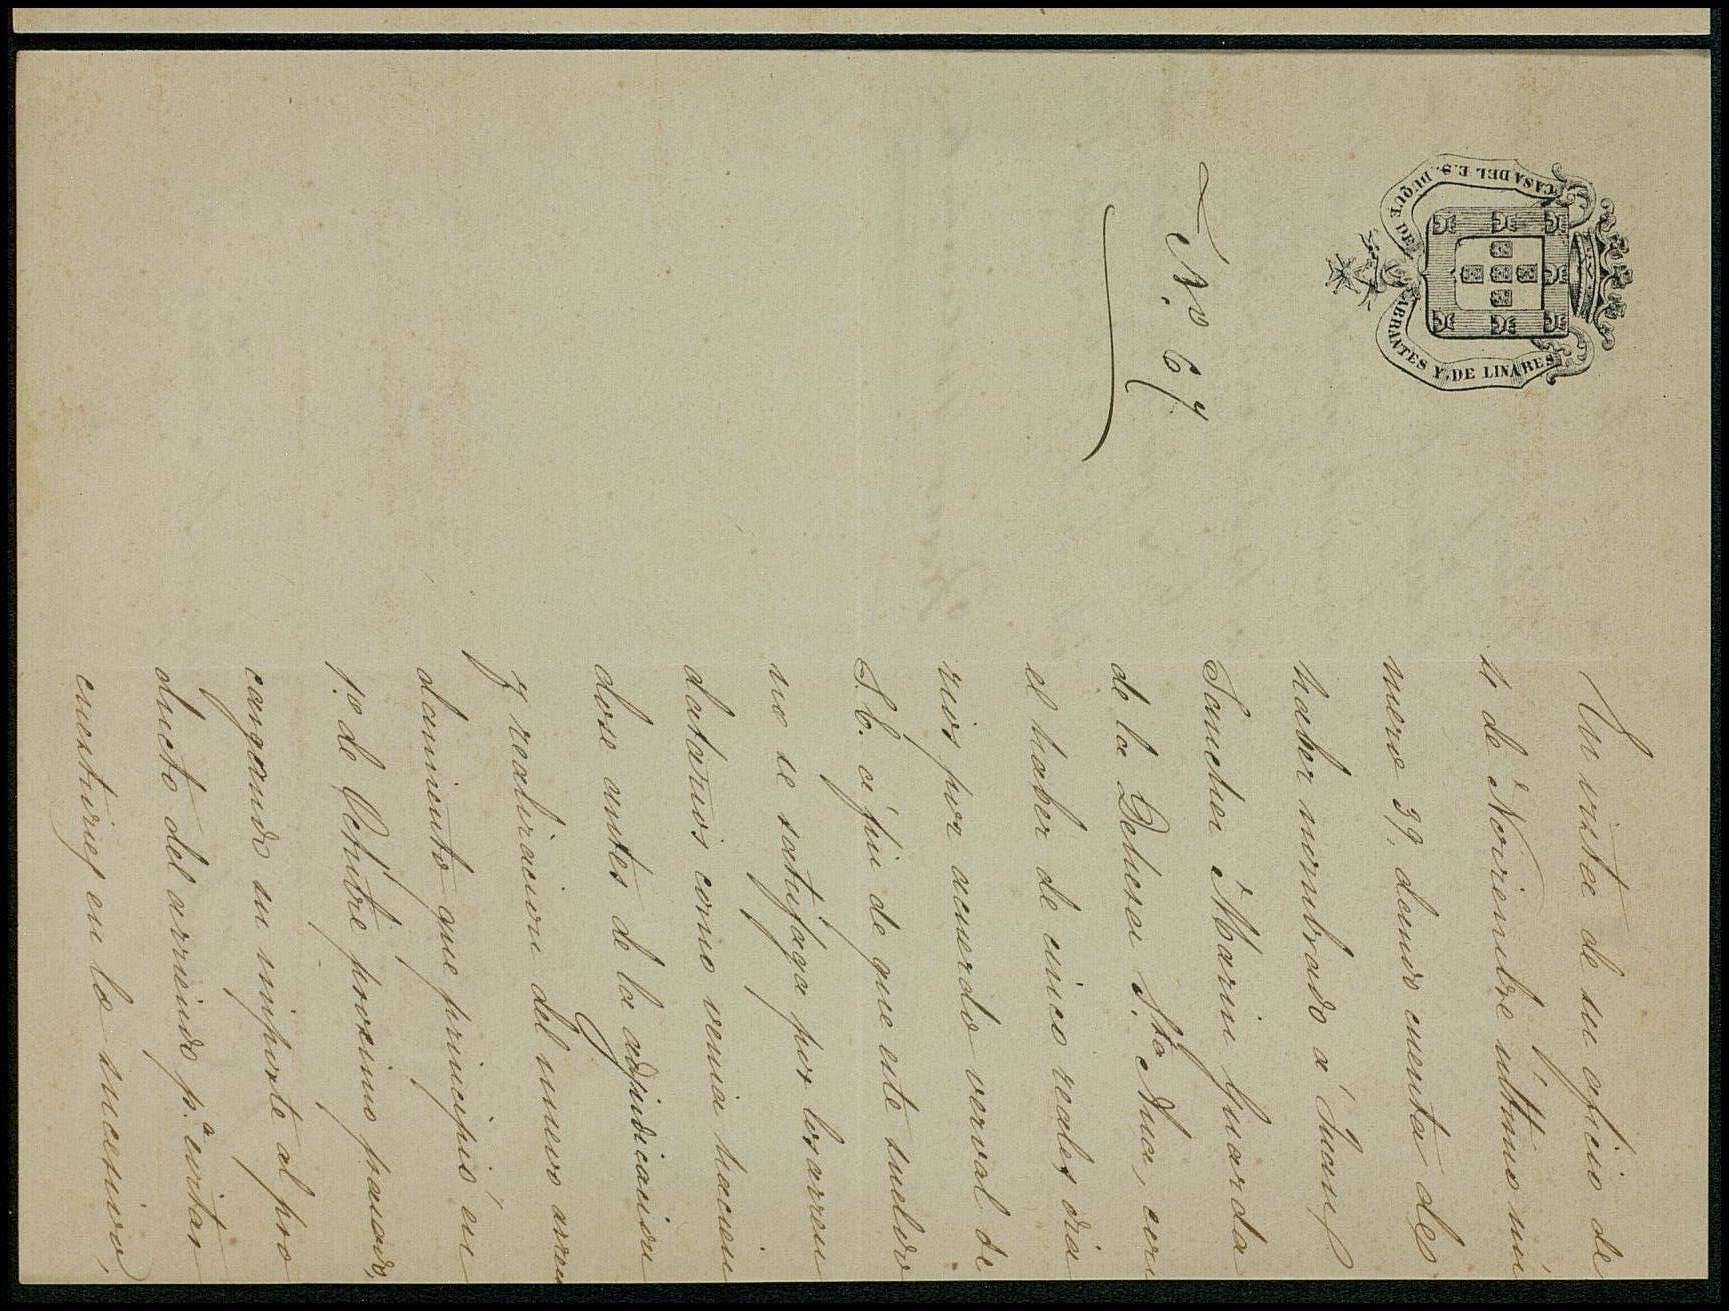 CASA DEL E.S. DUQUE DE ABRANTES Y DE LINARES
N.o 67
En vista de su oficio de
4 de Noviembre ultimo nú
mero 39, dando cuenta de
haber nombrado á Juan
Sanchez Marin Guarda
de la Dehesa Sta Ana, con
el haber de cinco reales dia
rios por acuerdo verval de
S.E. á fin de que este sueldo
no se satisfaga por los arren
datarios como venia hacien
dose antes de la adjudicacion
y realizacion del nuevo arren
damiento que principió en
1o de Octubre procsimo pasado,
cargando su importe al pro
ducto del arriendo p.a evitar
cuestiones en lo sucesivo,